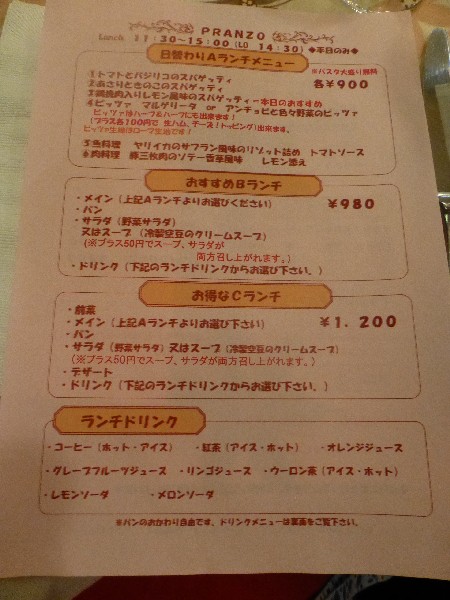 PRANZO
Lunch 11:30~15:00(LO 14:30)◆平日のみ◆
日替わりAランチメニュー
※パスタ大盛り無料
①トマトとバジリコのスパゲッティ
各¥900
②あさりときのこのスパゲッティ
③鶏挽肉入りレモン風味のスパゲッティー本日のおすすめ
4ピッツァ マルゲリータ or アンチョビと色々野菜のピッツァ
ピッツァはハーフ&ハーフにも出来ます!
(プラス各100円で 生ハム、チーズ!トッピング)出来ます。
ピッツァ生地はローマ生地です!
5魚料理 ヤリイカのサフラン風味のリゾット詰め トマトソース
6肉料理 豚三枚肉のソテー香草風味 レモン添え
おすすめBランチ
・メイン(上記Aランチよりお選びください)
¥980
・パン
・サラダ(野菜サラダ)
又はスープ(冷製空豆のクリームスープ)
(※プラス50円でスープ、サラダが
両方召し上がれます。)
・ドリンク(下記のランチドリンクからお選び下さい。)
お得なCランチ
・前菜
・メイン(上記Aランチよりお選び下さい)
¥1.200
・パン
・サラダ(野菜サラダ)又はスープ(冷製空豆のクリームスープ)
(※プラス50円でスープ、サラダが両方召し上がれます。)
・デザート
・ドリンク(下記のランチドリンクからお選び下さい。)
ランチドリンク
・コーヒー(ホット・アイス) ・紅茶(アイス・ホット) ・オレンジジュース
・グレープフルーツジュース ・リンゴジュース ・ウーロン茶(アイス・ホット)
・レモンソーダ ・メロンソーダ
※パンのおかわり自由です、ドリンクメニューは裏面をご覧下さい。